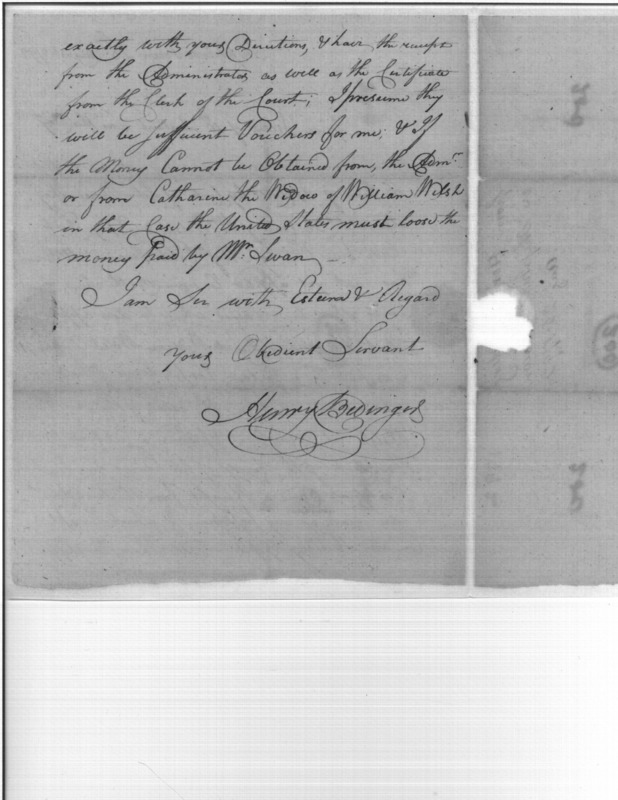 exactly with your Directions, & have the receipt
from the Administrator as well as the Certificate
from the Clerk of the Court; I presume they
will be sufficient Vouchers for me; & If
the Money Cannot be Obtained from, the Admr.
or from Catharine the Widow of William Welsh
in that Case the United States must loose the
money paid by Mr. Swan
I am Sir with Esteem & Regard
your Obedient Servant
Henry Bedinger
200
200
200